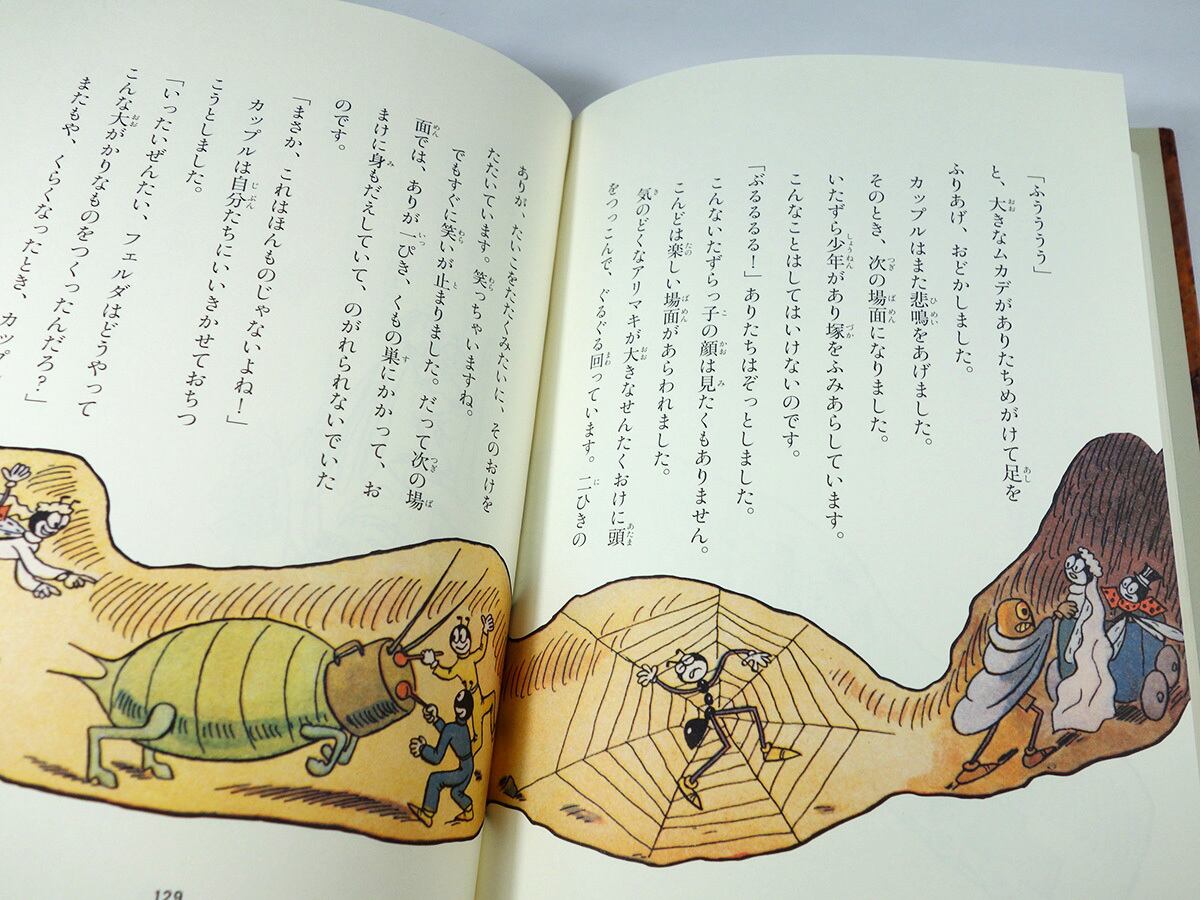 「ふうううう」
と、大きなムカデがありたちめがけて足を
ふりあげ、おどかしました。
カップルはまた悲鳴をあげました。
そのとき、次の場面になりました。
いたずら少年があり塚をふみあらしています。
こんなことはしてはいけないのです。
「ぶるるるる！」ありたちはぞっとしました。
こんないたずらっ子の顔は見たくもありません。
こんどは楽しい場面があらわれました。
気のどくなアリマキが大きなせんたくおけに頭
をつっこんで、ぐるぐる回っています。二ひきの
ありが、たいこをたたくみたいに、そのおけを
たたいています。笑っちゃいますね。
でもすぐに笑いが止まりました。だって次の場
面では、ありが一ぴき、くもの巣にかかって、お
まけに身もだえしていて、のがれられないでいた
のです。
「まさか、これはほんものじゃないよね！」
カップルは自分たちにいいきかせておちつ
こうとしました。
「いったいぜんたい、フェルダはどうやって
こんな大がかりなものをつくったんだろ？」
またもや、くらくなったとき、カップ
129